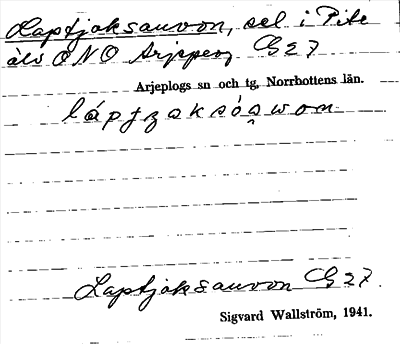 Laptjaksauvon, sel i Pite
älv ONO Arjeplog G 27
Arjeplogs sn och tg, Norrbottens län.
Laptjaksauvon G 27.
Sigvard Wallström, 1941.